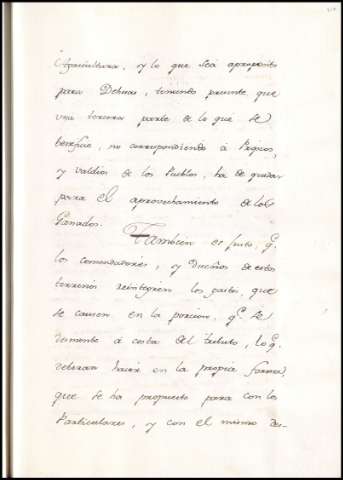 Agricultura, y lo que sea aproposito
para Dehesas, teniendo presente que
una tercera parte de lo que se
beneficie, no correspondiendo á Propios,
y valdios de los Pueblos, ha de quedar
para el aprovechamiento de los
Ganados. Tambien es justo, q.e
los comendadores, y Dueños de estos
terrenos reintegren los gastos, que
se causen en la porcion, q.e se
desmonte á costa del tributo, lo q.e
deberan hacer en la propia forma,
que se ha propuesto para con los
Particulares, y con el mismo des-